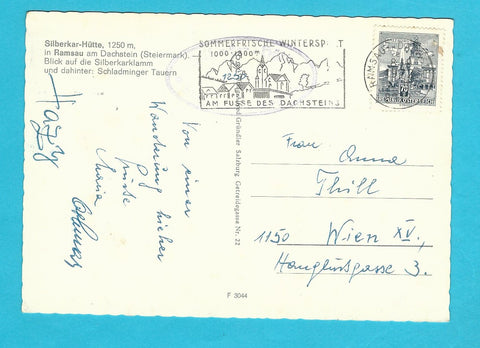 Silberkar-Hütte, 1250 m,
in Ramsau am Dachstein (Steiermark).
Blick auf die Silberkarklamm
und dahinter: Schladminger Tauern
SOMMERFRISCHE-WINTERSPORT
1000-1800m
AM FUSSE DES DACHSTEINS
REPUBLIK ÖSTERREICH
Von einer
Wanderung hieher
Grüsse
Maria
Gründler Salzburg Getreidegasse Nr. 22
F 3044
Frau Anna
Thill
1150 Wien XV,
3.